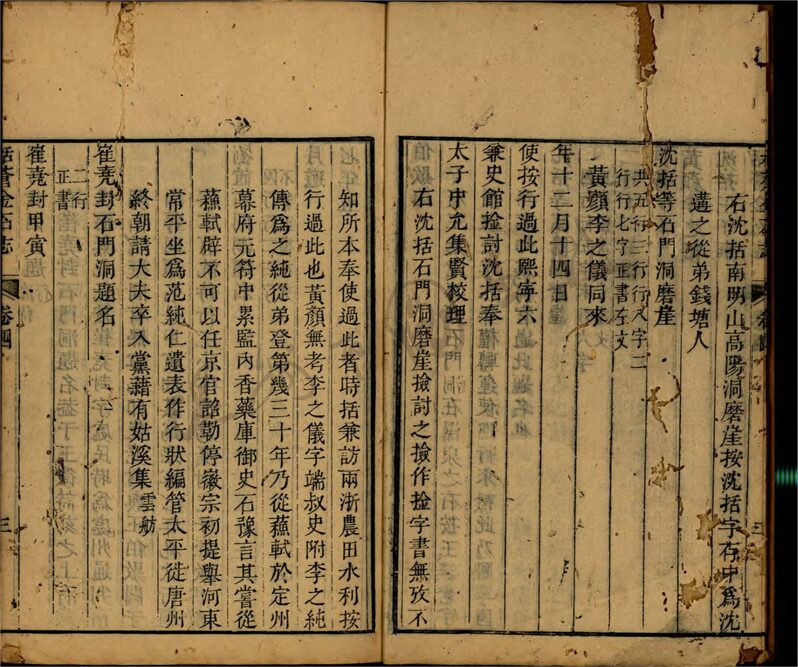 右沈括南明山高陽洞磨崖按沈括字存中爲沈
遘之從弟錢塘人
沈括等石門洞磨崖
共五行三行行八字二
行行七字正書左文
黃顔李之儀同來
年十二月十四日
使按行過此熙寧六
兼史館撿討沈括奉
太子中允集賢校理
右沈括石門洞磨崖撿討之撿作捡字書無攷不
知所本奉使過此者時括兼訪兩浙農田水利按
行過此也黃顔無考李之儀字端叔史附李之純
傳爲之純從弟登第幾三十年乃從蘓軾於定州
幕府元符中累監內香藥庫御史石豫言其嘗從
蘓軾辟不可以任京官詔勒停徽宗初提舉河東
常平坐爲范純仁遺表作行狀編管太平從唐州
終朝請大夫卒入黨藉有姑溪集 雲舫
崔堯封石門洞題名
二行
正書
崔堯封甲寅
括蒼金石志
卷四
三